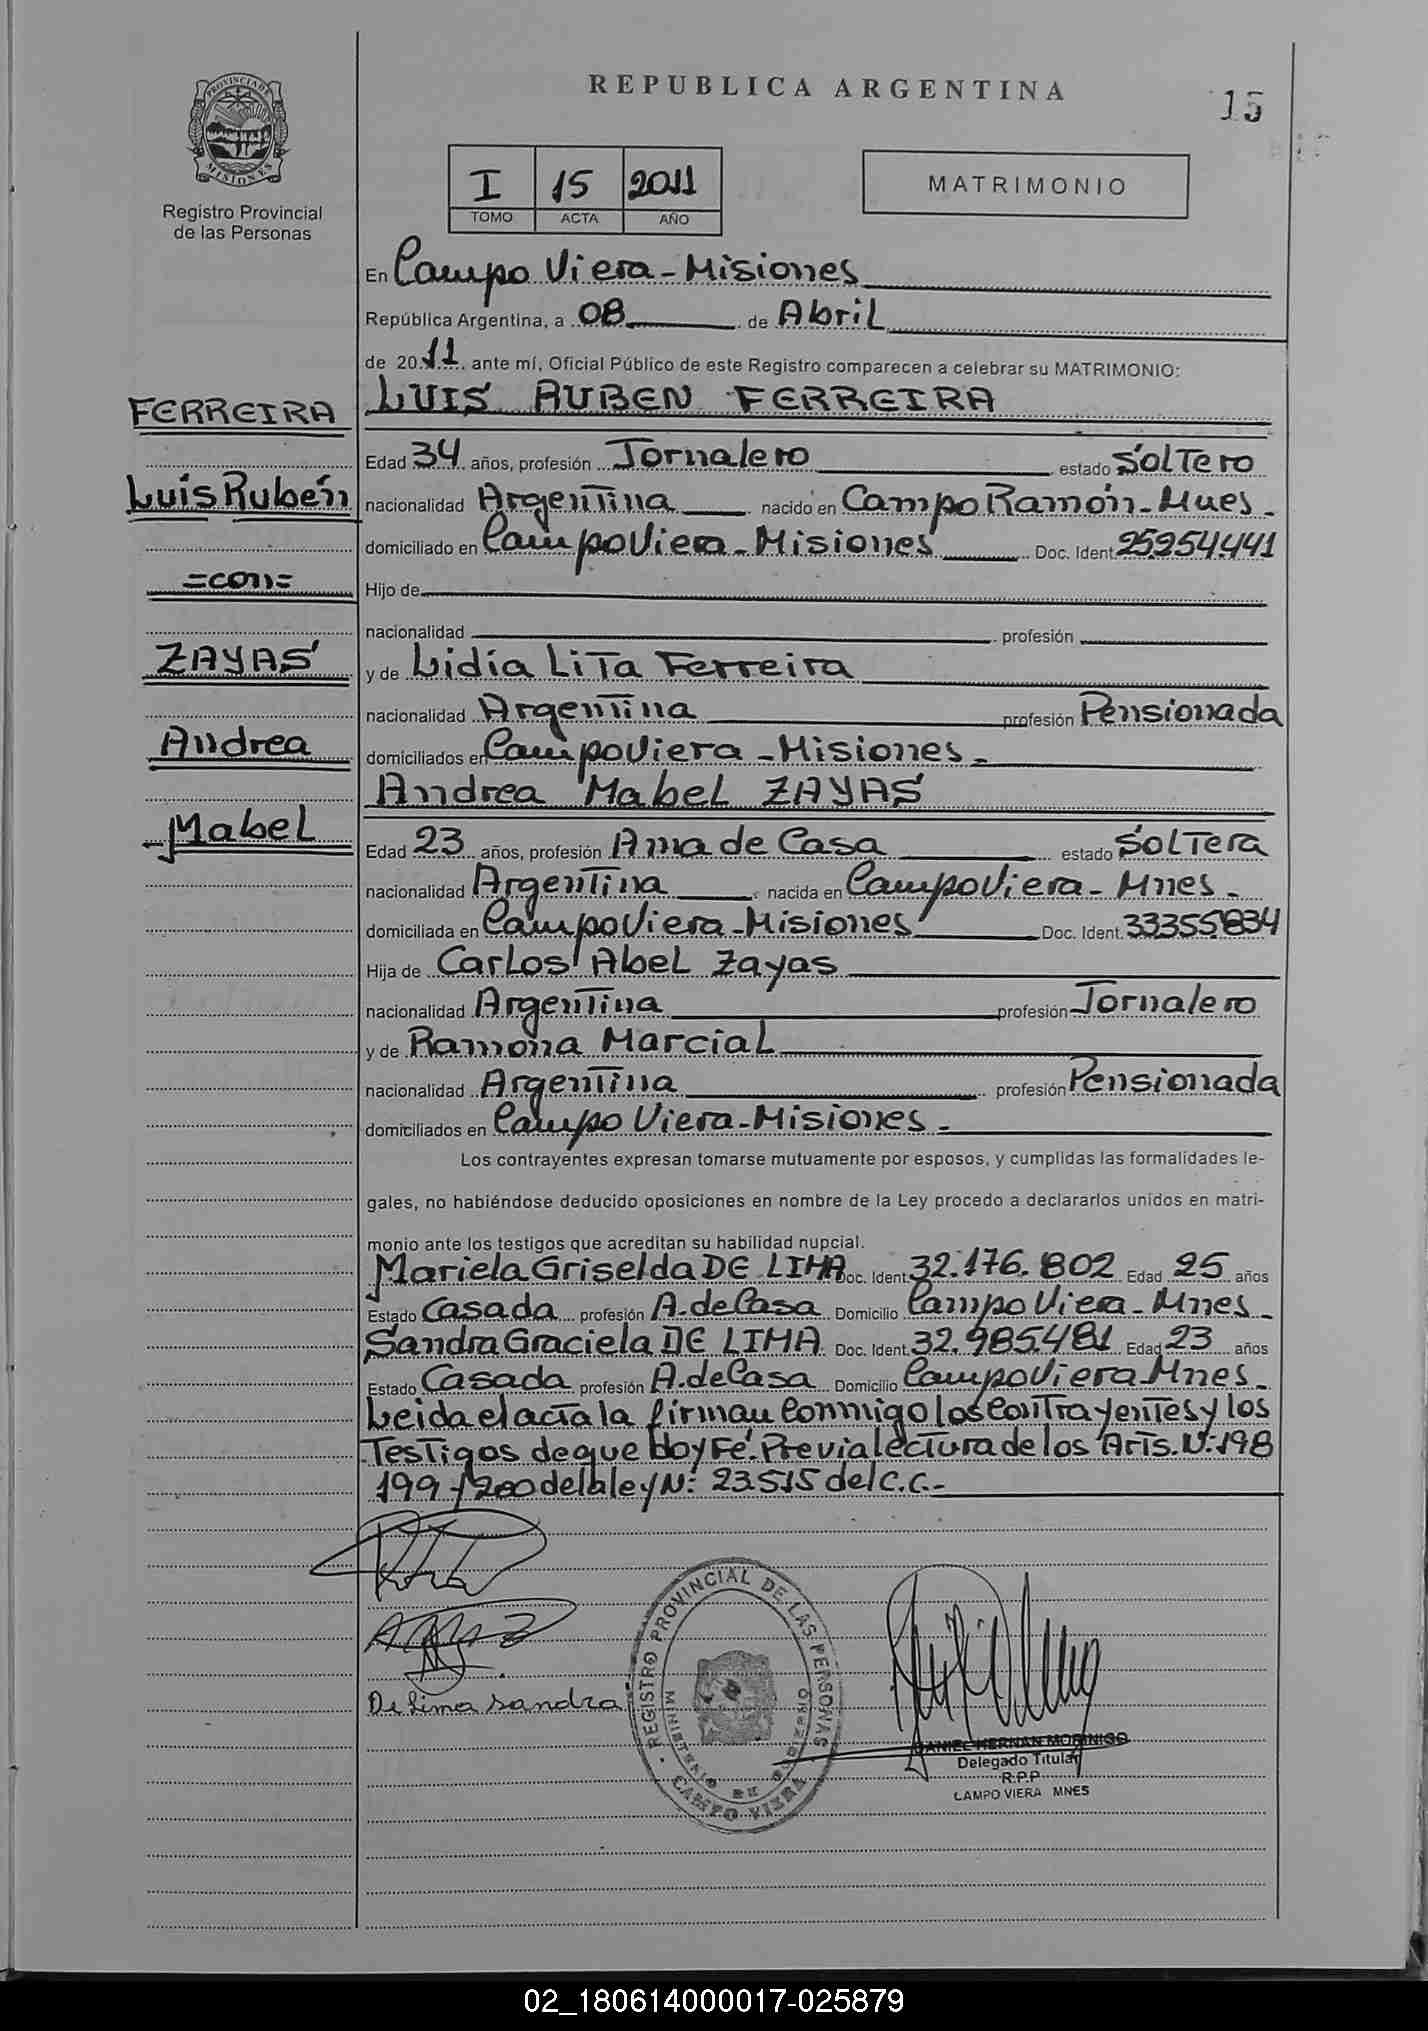 REPUBLICA ARGENTINA
15
PROVINCIA DE
MISIONES
Registro Provincial
de las Personas
I 15 2011
TOMO ACTA AÑO
MATRIMONIO
En Campo Viera-Misiones
República Argentina, a 08 de Abril
de 2011 ante mí, Oficial Público de este Registro comparecen a celebrar su MATRIMONIO:
FERREIRA
LUIS RUBEN FERREIRA
Edad 34 años, profesión Jornalero estado Soltero
Luis Rubén
nacionalidad Argentina nacido en Campo Ramón-Mnes-
domiciliado en Campo Viera-Misiones Doc. Ident. 25.254.441
=con=
Hijo de
nacionalidad profesión
ZAYAS
y de Lidia Lita Ferreira
nacionalidad Argentina profesión Pensionada
Andrea
domiciliados en Campo Viera-Misiones-
Andrea Mabel ZAYAS
Mabel
Edad 23 años, profesión Ama de Casa estado Soltera
nacionalidad Argentina nacida en Campo Viera-Mnes-
domiciliada en Campo Viera-Misiones Doc. Ident. 33355834
Hija de Carlos Abel Zayas
nacionalidad Argentina profesión Jornalero
y de Ramona Marcial
nacionalidad Argentina profesión Pensionada
domiciliados en Campo Viera-Misiones-
Los contrayentes expresan tomarse mutuamente por esposos, y cumplidas las formalidades le-
gales, no habiéndose deducido oposiciones en nombre de la Ley procedo a declararlos unidos en matri-
monio ante los testigos que acreditan su habilidad nupcial.
Mariela Griselda DE LIMA Doc. Ident. 32.176.802 Edad 25 años
Estado Casada profesión A. de Casa Domicilio Campo Viera-Mnes-
Sandra Graciela DE LIMA Doc. Ident. 32.985.481 Edad 23 años
Estado Casada profesión A. de Casa Domicilio Campo Viera-Mnes-
Leida el acta la firman conmigo los contrayentes y los
Testigos de que doy Fé. Previa lectura de los Arts. N: 198
199 y 200 de la ley N: 23.515 del C.C.-
De Lima Sandra
REGISTRO PROVINCIAL DE LAS PERSONAS
MINISTERIO DE GOBIERNO
CAMPO VIERA
DANIEL HERNAN MORINIGO
Delegado Titular
R.P.P
CAMPO VIERA MNES
02_180614000017-025879